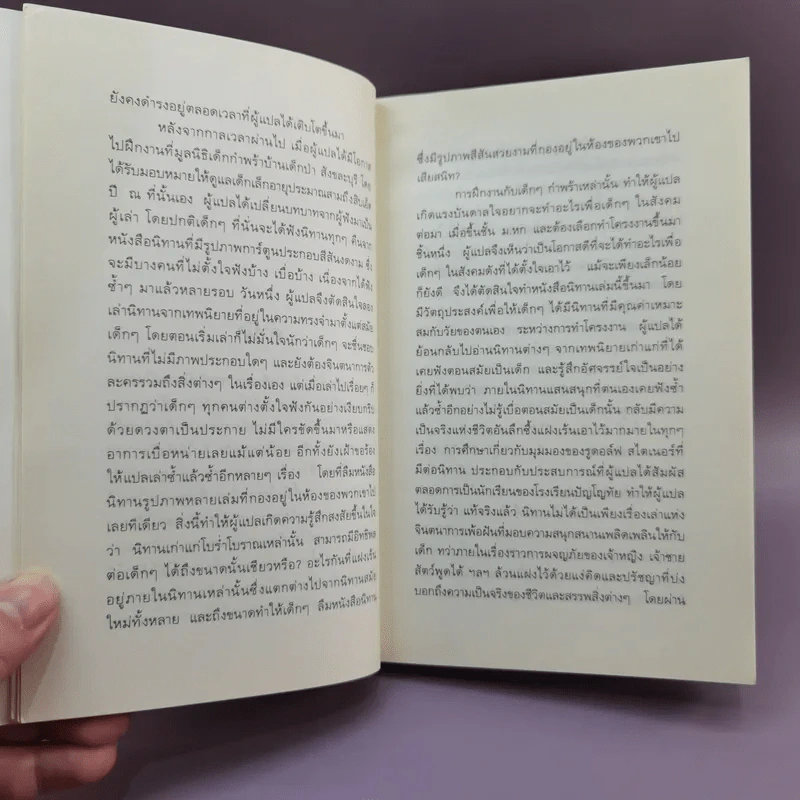 ยังคงดำรงอยู่ตลอดเวลาที่ผู้แปลได้เติบโตขึ้นมา
หลังจากกาลเวลาผ่านไป เมื่อผู้แปลได้มีโอกาส
ไปฝึกงานที่มูลนิธิเด็กกำพร้าบ้านเด็กป่า สังขละบุรี โดย
ได้รับมอบหมายให้ดูแลเด็กเล็กอายุประมาณสามถึงสิบเอ็ด
ปี ณ ที่นั้นเอง ผู้แปลได้เปลี่ยนบทบาทจากผู้ฟังมาเป็น
ผู้เล่า โดยปกติเด็กๆ ที่นั่นจะได้ฟังนิทานทุกๆ คืนจาก
หนังสือนิทานที่มีรูปภาพการ์ตูนประกอบสีสันงดงาม ซึ่ง
จะมีบางคนที่ไม่ตั้งใจฟังบ้าง เบื่อบ้าง เนื่องจากได้ฟัง
ซ้ำๆ มาแล้วหลายรอบ วันหนึ่ง ผู้แปลจึงตัดสินใจลอง
เล่านิทานจากเทพนิยายที่อยู่ในความทรงจำมาตั้งแต่สมัย
เด็กๆ โดยตอนเริ่มเล่าก็ไม่มั่นใจนักว่าเด็กๆ จะชื่นชอบ
นิทานที่ไม่มีภาพประกอบใดๆ และยังต้องจินตนาการตัว
ละครรวมถึงสิ่งต่างๆ ในเรื่องเอง แต่เมื่อเล่าไปเรื่อยๆ ก็
ปรากฏว่าเด็กๆ ทุกคนต่างตั้งใจฟังกันอย่างเงียบกริบ
ด้วยดวงตาเป็นประกาย ไม่มีใครขัดขึ้นมาหรือแสดง
อาการเบื่อหน่ายเลยแม้แต่น้อย อีกทั้งยังเฝ้าขอร้อง
ให้แปลเล่าซ้ำแล้วซ้ำอีกหลายๆ เรื่อง โดยที่ลืมหนังสือ
นิทานรูปภาพหลายเล่มที่กองอยู่ในห้องของพวกเขาไป
เลยทีเดียว สิ่งนี้ทำให้ผู้แปลเกิดความรู้สึกสงสัยขึ้นในใจ
ว่า นิทานเก่าแก่โบร่ำโบราณเหล่านั้น สามารถมีอิทธิพล
ต่อเด็กๆ ได้ถึงขนาดนั้นเชียวหรือ? อะไรกันที่แฝงเร้น
อยู่ภายในนิทานเหล่านั้นซึ่งแตกต่างไปจากนิทานสมัย
ใหม่ทั้งหลาย และถึงขนาดทำให้เด็กๆ ลืมหนังสือนิทาน
ซึ่งมีรูปภาพสีสันสวยงามที่กองอยู่ในห้องของพวกเขาไป
เสียสนิท?
การฝึกงานกับเด็กๆ กำพร้าเหล่านั้น ทำให้ผู้แปล
เกิดแรงบันดาลใจอยากจะทำอะไรเพื่อเด็กๆ ในสังคม
ต่อมา เมื่อขึ้นชั้น ม.หก และต้องเลือกทำโครงงานขึ้นมา
ชิ้นหนึ่ง ผู้แปลจึงเห็นว่าเป็นโอกาสดีที่จะได้ทำอะไรเพื่อ
เด็กๆ ในสังคมดังที่ได้ตั้งใจเอาไว้ แม้จะเพียงเล็กน้อย
ก็ยังดี จึงได้ตัดสินใจทำหนังสือนิทานเล่มนี้ขึ้นมา โดย
มีวัตถุประสงค์เพื่อให้เด็กๆ ได้มีนิทานที่มีคุณค่าเหมาะ
สมกับวัยของตนเอง ระหว่างการทำโครงงาน ผู้แปลได้
ย้อนกลับไปอ่านนิทานต่างๆ จากเทพนิยายเก่าแก่ที่ได้
เคยฟังตอนสมัยเป็นเด็ก และรู้สึกอัศจรรย์ใจเป็นอย่าง
ยิ่งที่ได้พบว่า ภายในนิทานแสนสนุกที่ตนเองเคยฟังซ้ำ
แล้วซ้ำอีกอย่างไม่รู้เบื่อตอนสมัยเป็นเด็กนั้น กลับมีความ
เป็นจริงแห่งชีวิตอันลึกซึ้งแฝงเร้นเอาไว้มากมายในทุกๆ
เรื่อง การศึกษาเกี่ยวกับมุมมองของรูดอล์ฟ สไตเนอร์ที่
มีต่อนิทาน ประกอบกับประสบการณ์ที่ผู้แปลได้สัมผัส
ตลอดการเป็นนักเรียนของโรงเรียนปัญโญทัย ทำให้ผู้แปล
ได้รับรู้ว่า แท้จริงแล้ว นิทานไม่ได้เป็นเพียงเรื่องเล่าแห่ง
จินตนาการเพ้อฝันที่มอบความสนุกสนานเพลิดเพลินให้กับ
เด็ก ทว่าภายในเรื่องราวการผจญภัยของเจ้าหญิง เจ้าชาย
สัตว์พูดได้ ฯลฯ ล้วนแฝงไว้ด้วยแง่คิดและปรัชญาที่บ่ง
บอกถึงความเป็นจริงของชีวิตและสรรพสิ่งต่างๆ โดยผ่าน